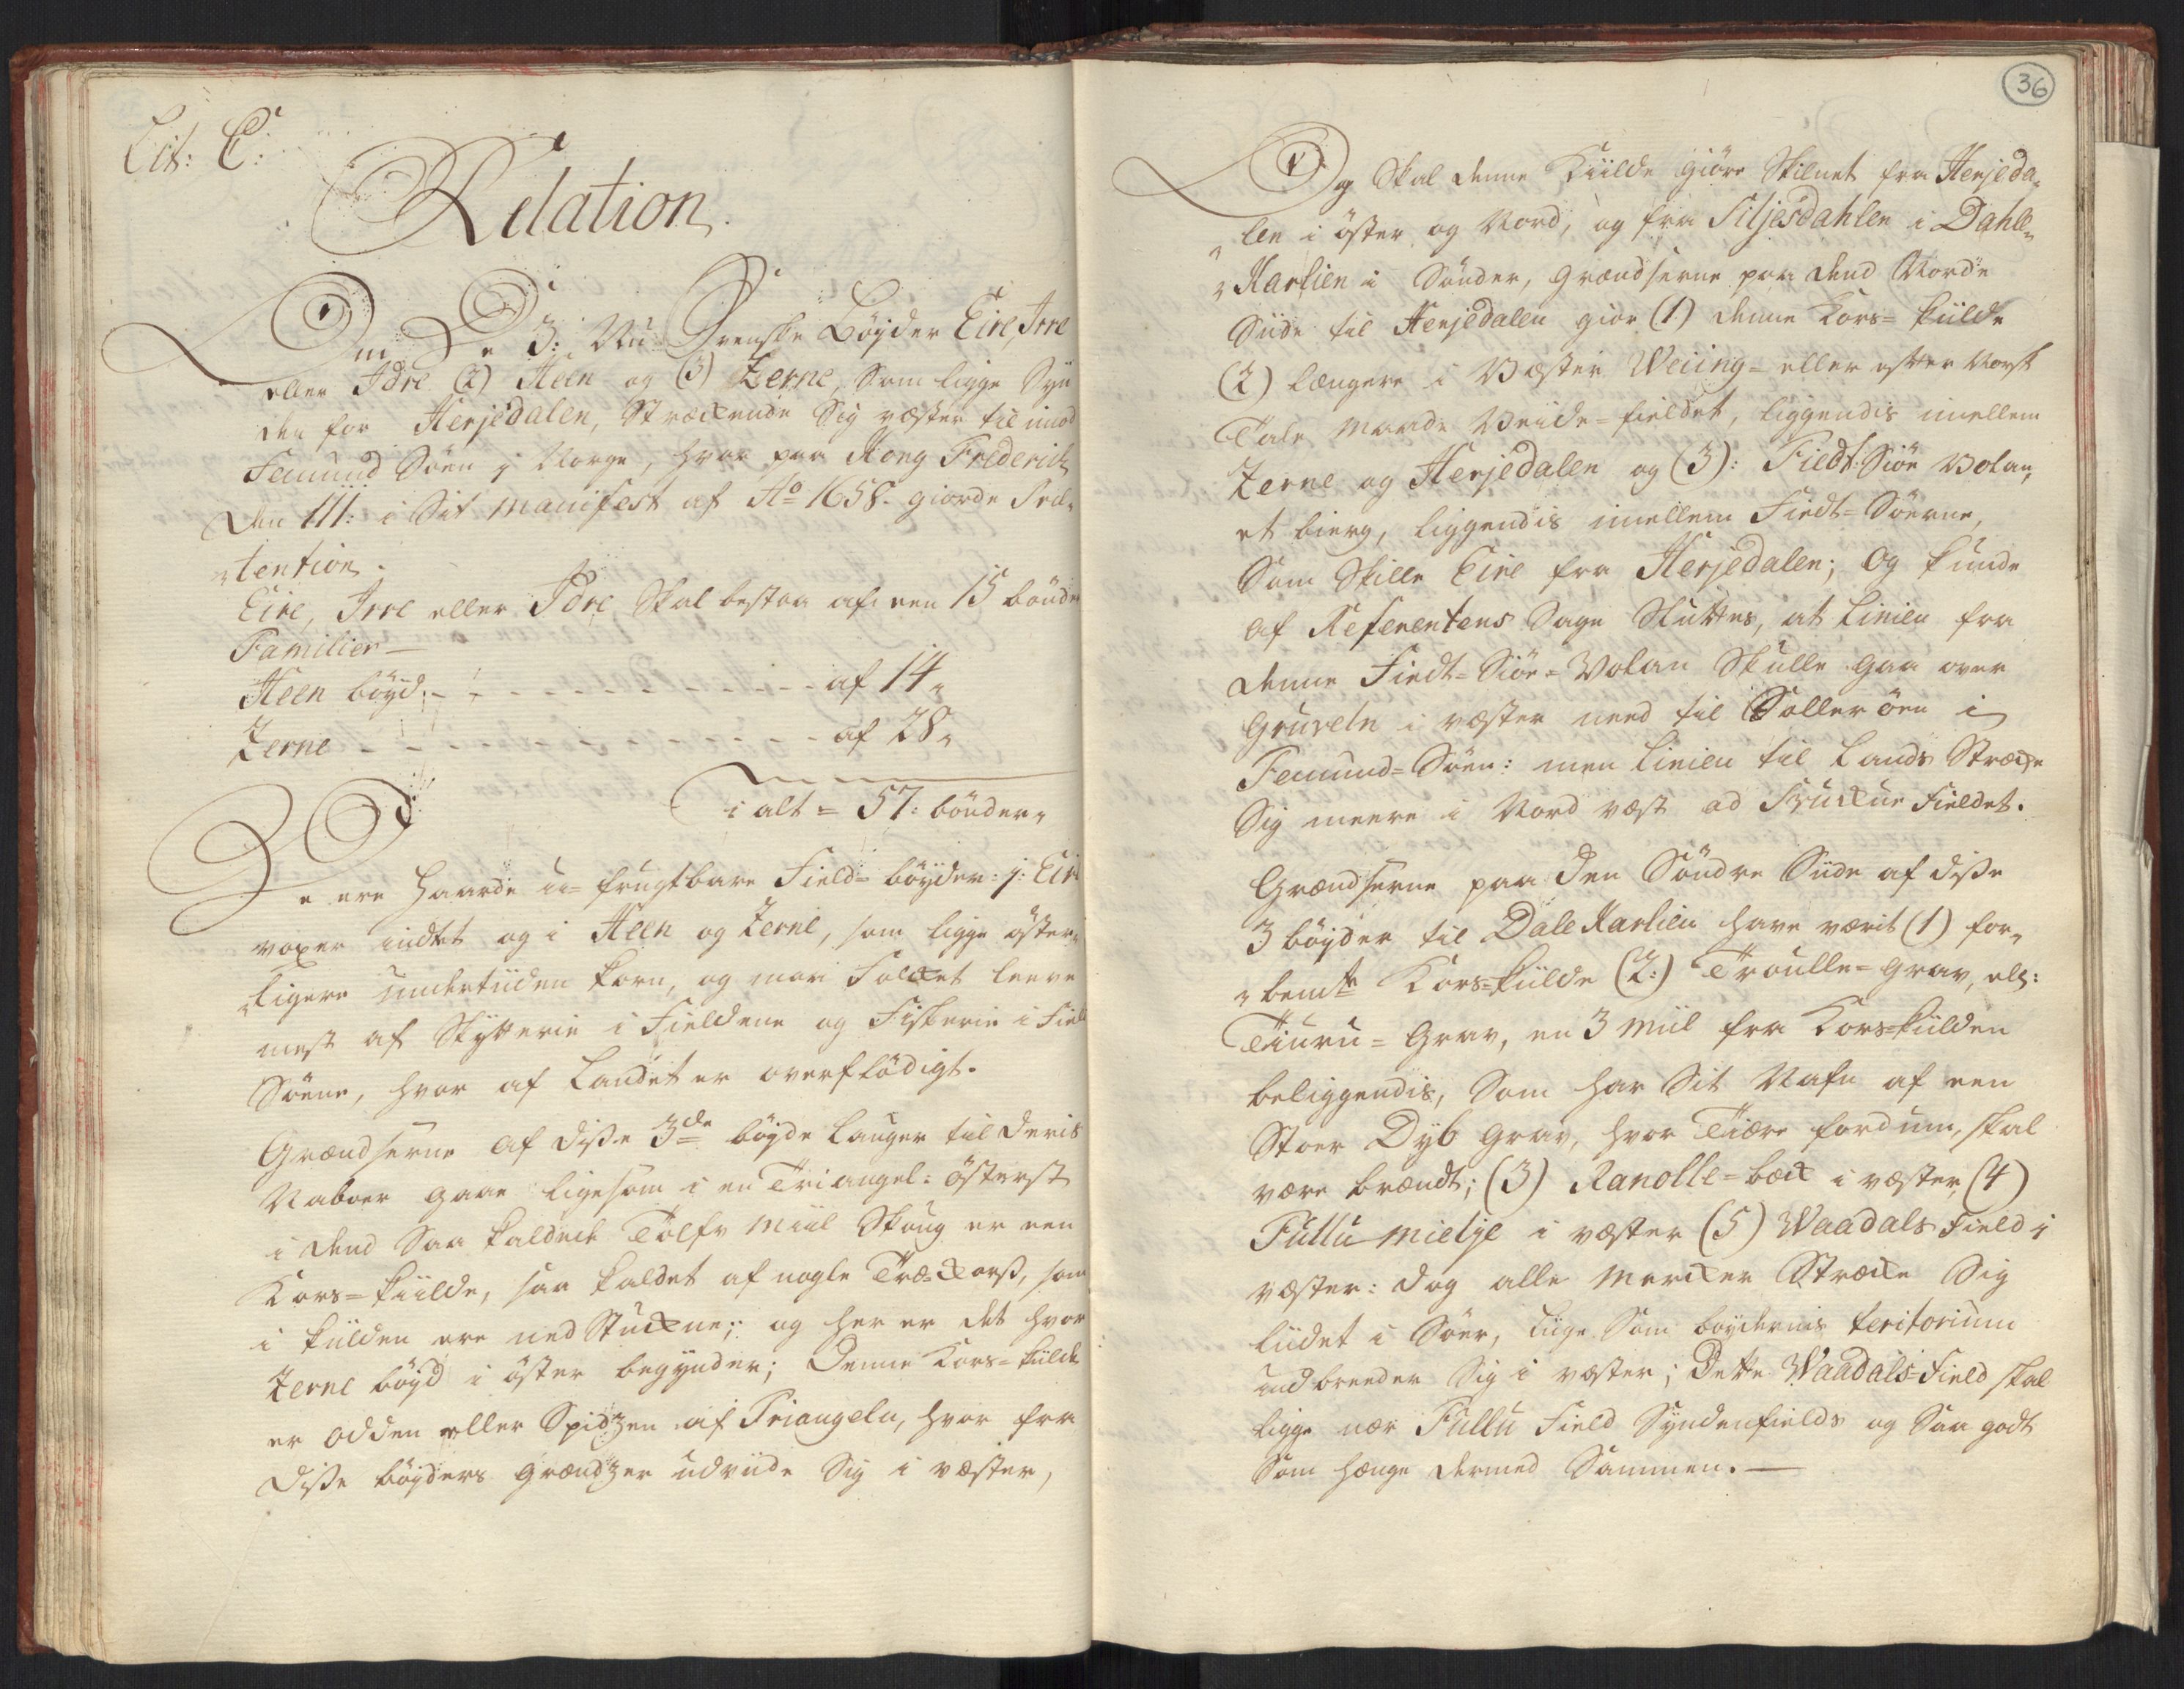 Lit: C:
Relation.
Om De 3: Nu Svenske Böyder Eire, Irre
eller Idre (2) Heen og (3) Zerne, Som ligge Syn
den for Herjedalen, Strækende Sig væster til imod
Femund Söen i Norge, hvor paa Kong Friderich
den III: i Sit Manifest af Ao 1658. giorde Præ-
tention.
Eire, Irre eller Idre Skal bestaa af een 15 bönder
Familier —
Heen böyd - - - - - - - - - - af 14 „
Zerne - - - - - - - - - - - - af 28 „
i alt = 57: bönder „
De ere Haarde u-frugtbare Field-böyder: j: Eire
voxer indtet og i Heen og Zerne, som ligge öster-
ligere undertiiden korn, og maa Folket leeve
mest af Skÿtterie i Fieldene og Fiskerie i Field
Söene, hvor af Landet er overflödigt.
Grændserne af diße 3de böyde Lauger til deris
Naboer gaae ligesom i en Triangel: österst
i dend Saa kaldede Tolfv Miil Skoug er een
Kors-kiilde, saa kaldet af nogle Træ-Korß, som
i kiilden ere ned Stukne; og her er det hvor
Zerne böyd i öster begynder; Denne Kors-kiilde
er odden eller Spidzen af Triangeln, hvor fra
diße böyders Grændzer udviide Sig i væster,
36
Og Skal denne Kiilde giöre Skilnet fra Herjeda-
len i öster og Nord, og fra Siljesdahlen i Dahle-
Karlien i Sönder, grændserne paa dend Norde
Siide til Herjedalen giör (1) denne Kors-kiilde
(2) længere i Væster Weiing- eller efter Norsk
Tale Maade Veide-fieldet, liggendis imellem
Zerne og Herjedalen og (3): Fiedt-Siöe Volan,
et bierg, liggendis imellem Fiedt-Söerne,
Som Skille Eire fra Herjedalen; og kunde
af Referentens Sage Sluttes, at Linien fra
denne Fiedt-Siöe-Volan Skulle gaa over
Gruveln i væster need til Solleröen i
Femund-Söen: men Linien til Lands Strække
Sig meere i Nord væst ad Svukue Fieldet.
Grændserne paa den Söndre Siide af diße
3 böyder til Dale Karlien have værit (1) for-
bemte Kors-kiilde (2:) Troulle-grav, ell:
Tiuru-Grav, en 3 Miil fra Kors-kiilden
beliggendis, Som har Sit Nafn af een
Stoer Dyb grav, hvor Tiære fordum, skal
være brændt; (3) Ranolle-bæk i væster, (4)
Fullu-mielye i væster (5) Waadals Field i
væster: dog alle Merker Strække Sig
liidet i Söer, liige Som böydernis teritorium
udbreeder Sig i væster; Dette Waadals-Field skal
ligge nær Fullu Field Syndenfields og Saa godt
Som hænge dermed Sammen. —